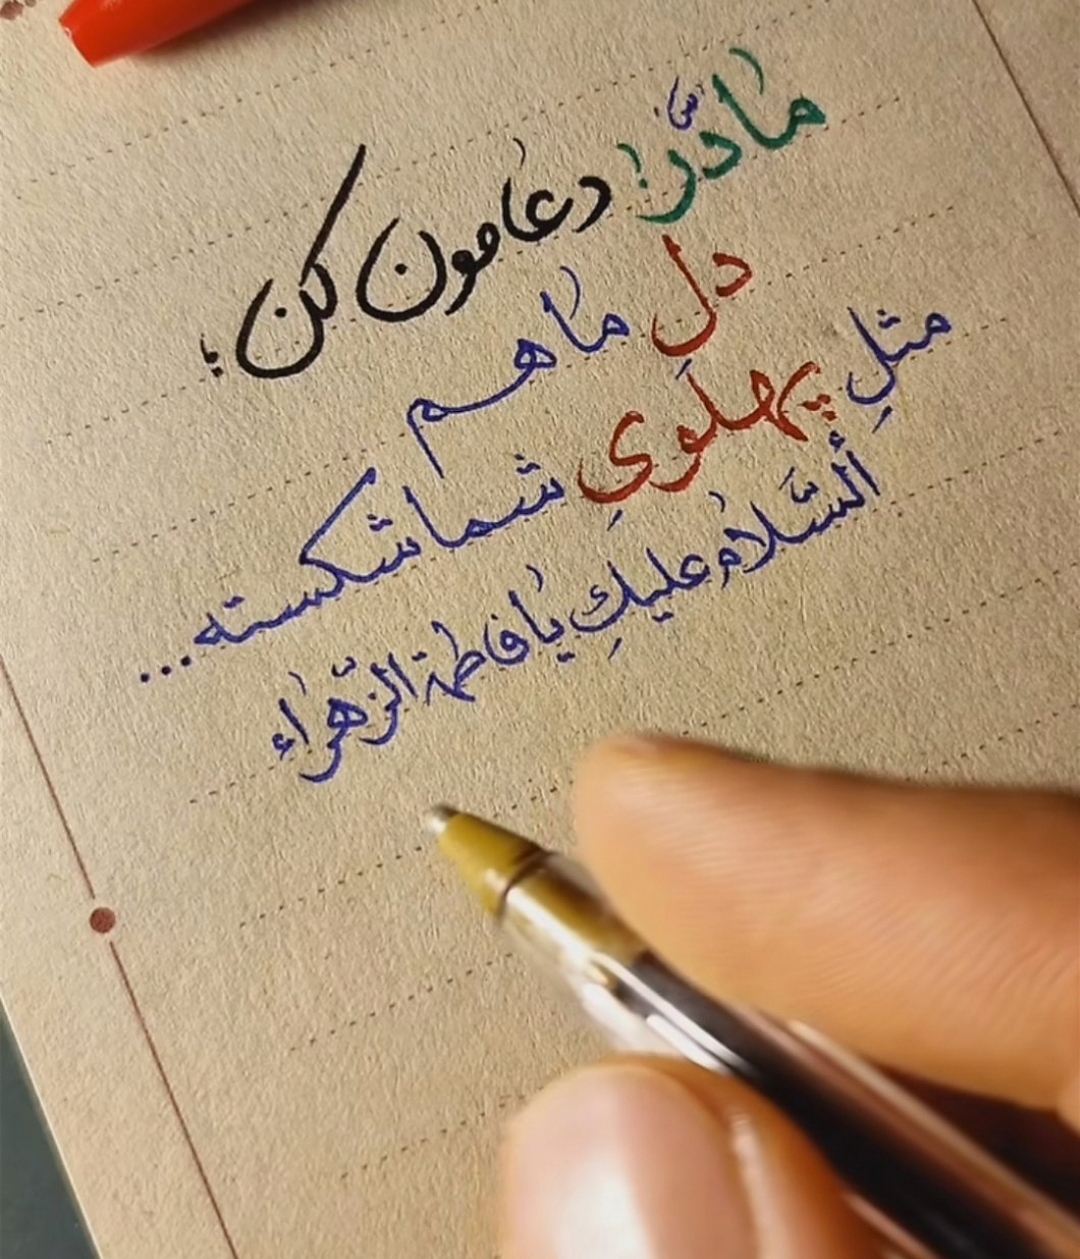 مادر دعامون کن؛
دلِ ما هم
مثلِ پهلویِ شما شکسته...
ألسَّلام علیکِ یا فاطمة الزّهراء